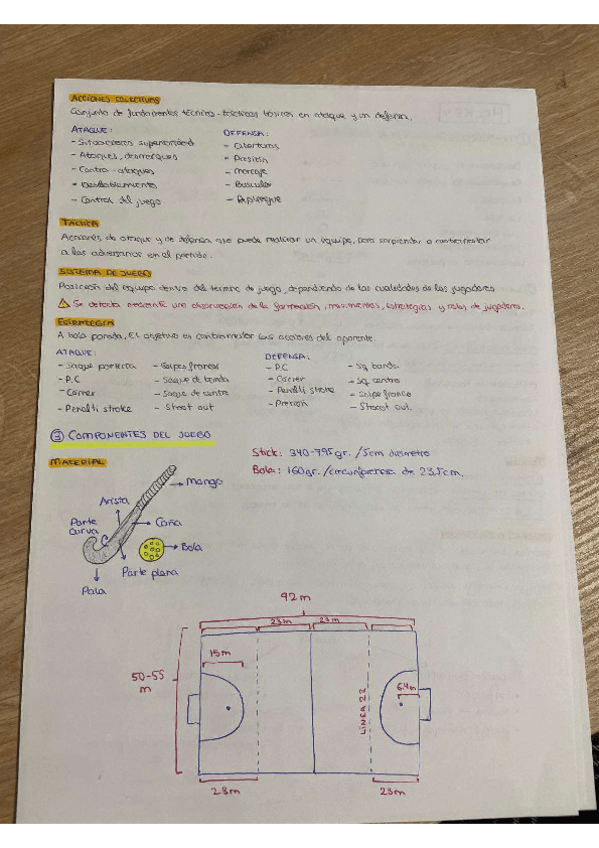 ACCIONES COLECTIVAS
Conjunto de fundamentos técnicos-tácticos básicos en ataque y en defensa.
ATAQUE: DEFENSA:
- Situaciones superioridad - Coberturas
- Ataques, desmarques - Presión
- Contra-ataques - Marcaje
- Desdoblamiento - Basculación
- Control del juego - Repliegue
TÁCTICA
Acciones de ataque y de defensa que puede realizar un equipo, para sorprender o contrarrestar
a los adversarios en el partido.
SISTEMA DE JUEGO
Posición del equipo dentro del terreno de juego, dependiendo de las cualidades de los jugadores
Se detecta mediante una observación de la formación, movimientos, estrategias y roles de jugadores.
ESTRATEGIA
A bola parada, El objetivo es contrarrestar las acciones del oponente
ATAQUE: DEFENSA:
- Saque portería - Golpes francos - P.C - Sq banda
- P.C - Saque de banda - Córner - Sq centro
- Córner - Saque de centro - Penalti stroke - Golpe franco
- Penalti stroke - Shoot out - Presión - Shoot out.
③ COMPONENTES DEL JUEGO
MATERIAL
Stick: 340-795gr. /5cm diámetro
Bola: 160gr. /circunferencia de 23,5cm.
Mango
Arista
Parte curva
Caña
Bola
Parte plana
Pala
92 m
23m 23m
15m
50-55 m
LÍNEA 22
6,4m
23m 23m